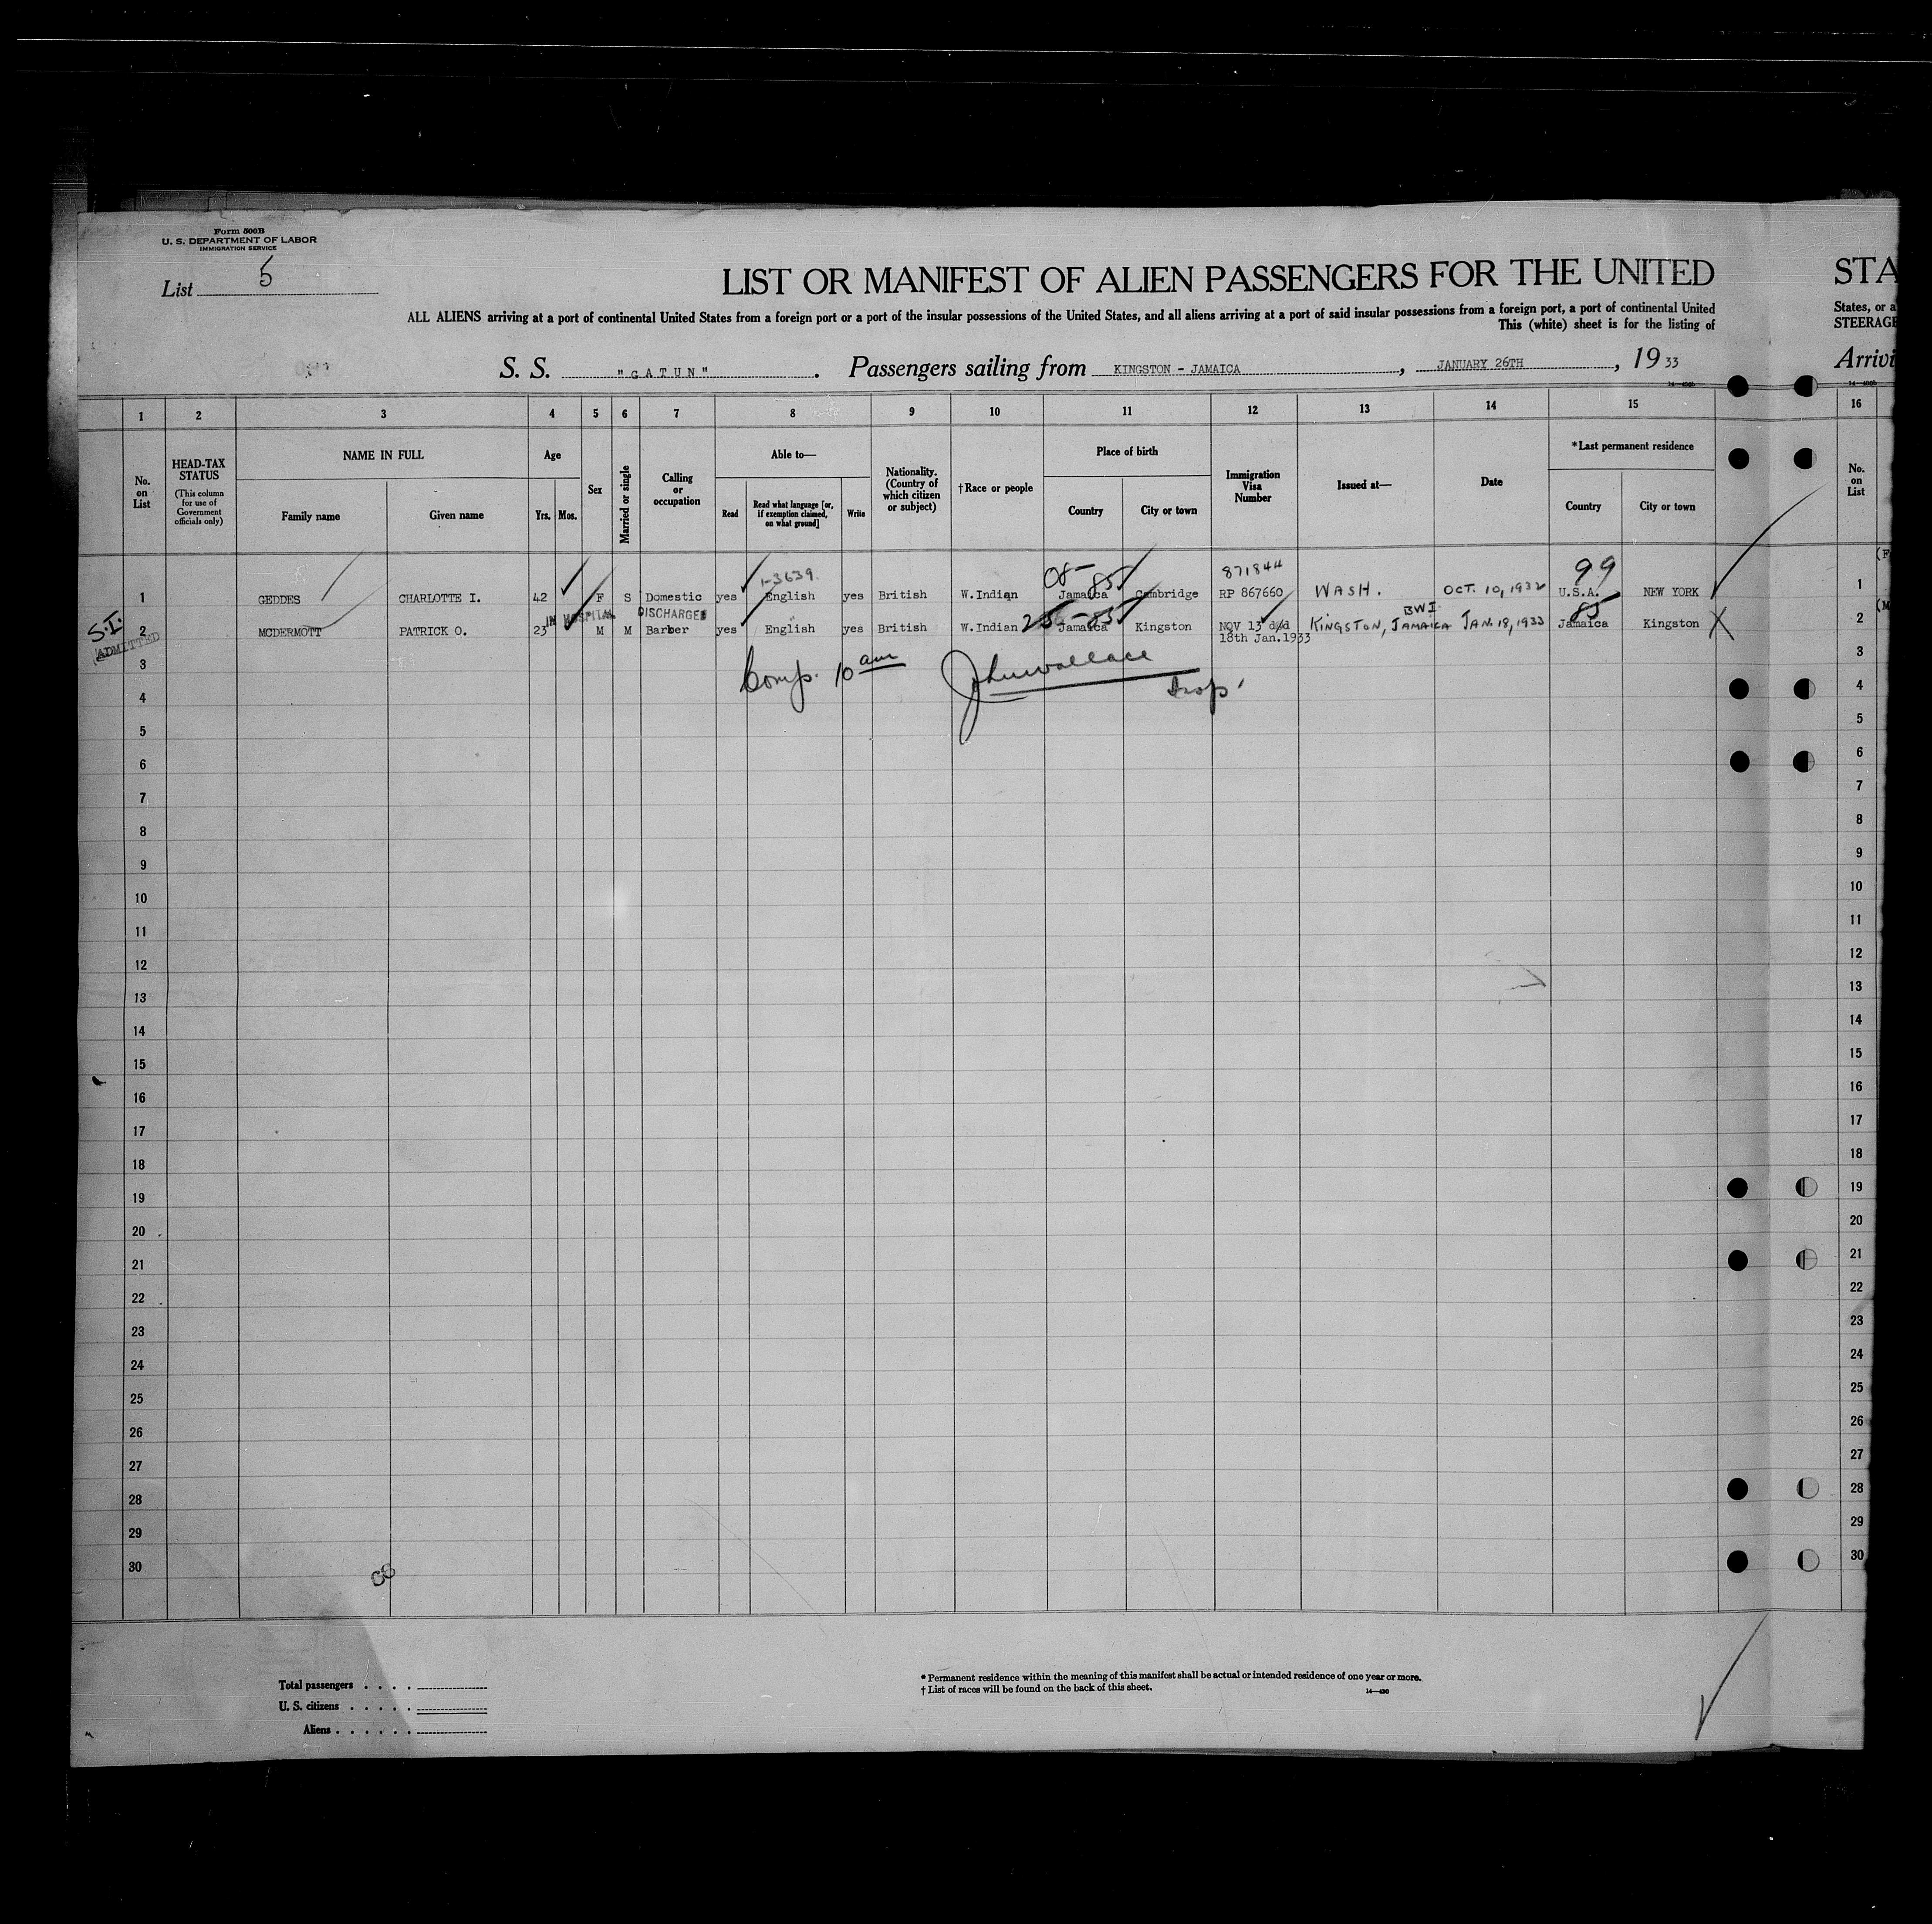 Form 500B
U. S. DEPARTMENT OF LABOR
IMMIGRATION SERVICE
List 5
LIST OR MANIFEST OF ALIEN PASSENGERS FOR THE UNITED STA
ALL ALIENS arriving at a port of continental United States from a foreign port or a port of the insular possessions of the United States, and all aliens arriving at a port of said insular possessions from a foreign port, a port of continental United States, or a
This (white) sheet is for the listing of STEERAGE
S. S. "GATUN". Passengers sailing from KINGSTON - JAMAICA, JANUARY 26TH, 1933 Arrivi
1 2 3 4 5 6 7 8 9 10 11 12 13 14 15 16
No. on List
HEAD-TAX STATUS (This column for use of Government officials only)
NAME IN FULL
Family name
Given name
Age
Yrs. Mos.
Sex
Married or single
Calling or occupation
Able to—
Read
Read what language [or, if exemption claimed, on what ground]
Write
Nationality. (Country of which citizen or subject)
†Race or people
Place of birth
Country
City or town
Immigration Visa Number
Issued at—
Date
*Last permanent residence
Country
City or town
No. on List
1-3639 05- 85 871844 99
1 GEDDES CHARLOTTE I. 42 F S Domestic yes English yes British W.Indian Jamaica Cambridge RP 867660 WASH. OCT. 10, 1932 U.S.A. NEW YORK 1
S.I. IN HOSPITAL DISCHARGED BWI 85
2 MCDERMOTT PATRICK O. 23 M M Barber yes English yes British W.Indian Jamaica Kingston NQV 13 d/d KINGSTON, JAMAICA JAN. 18, 1933 Jamaica Kingston X 2
ADMITTED 18th Jan.1933
Comp. 10 am Johnwallace Insp
3 3
4 4
5 5
6 6
7 7
8 8
9 9
10 10
11 11
12 12
13 13
14 14
15 15
16 16
17 17
18 18
19 19
20 20
21 21
22 22
23 23
24 24
25 25
26 26
27 27
28 28
29 29
30 30
Total passengers
U. S. citizens
Aliens
* Permanent residence within the meaning of this manifest shall be actual or intended residence of one year or more.
† List of races will be found on the back of this sheet.
14—430